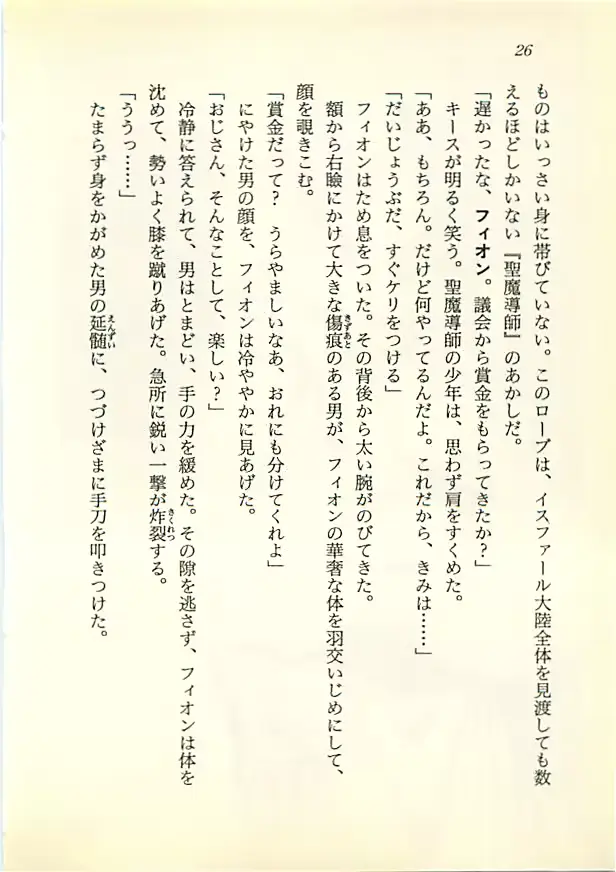 26
ものはいっさい身に帯びていない。このローブは、イスファール大陸全体を見渡しても数
えるほどしかいない『聖魔導師』のあかしだ。
「遅かったな、フィオン。議会から賞金をもらってきたか？」
キースが明るく笑う。聖魔導師の少年は、思わず肩をすくめた。
「ああ、もちろん。だけど何やってるんだよ。これだから、きみは……」
「だいじょうぶだ、すぐケリをつける」
フィオンはため息をついた。その背後から太い腕がのびてきた。
額から右瞼にかけて大きな傷痕のある男が、フィオンの華奢な体を羽交いじめにして、
顔を覗きこむ。
「賞金だって？　うらやましいなあ、おれにも分けてくれよ」
にやけた男の顔を、フィオンは冷ややかに見あげた。
「おじさん、そんなことして、楽しい？」
冷静に答えられて、男はとまどい、手の力を緩めた。その隙を逃さず、フィオンは体を
沈めて、勢いよく膝を蹴りあげた。急所に鋭い一撃が炸裂する。
「ううっ……」
たまらず身をかがめた男の延髄に、つづけざまに手刀を叩きつけた。